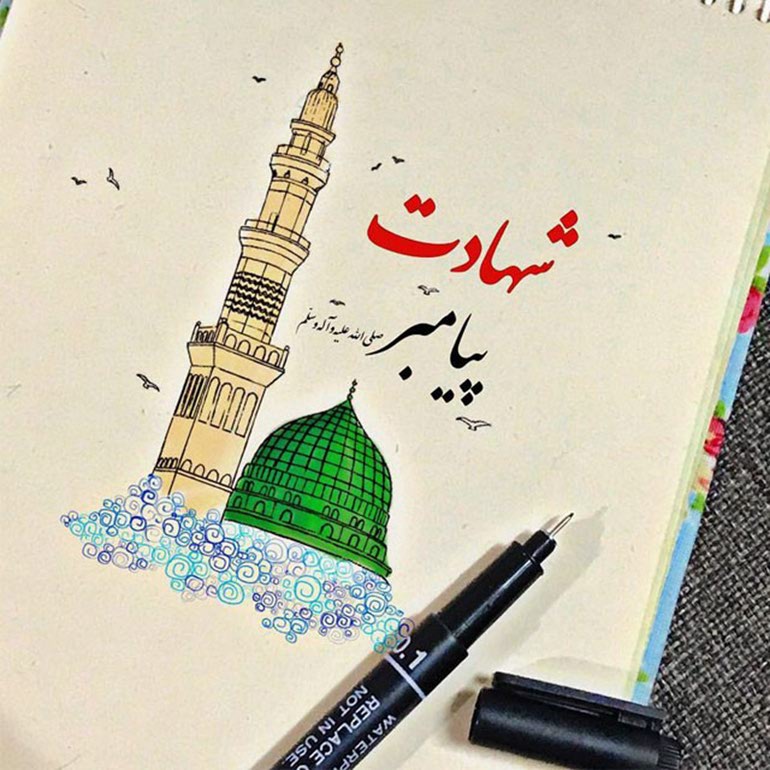 شهادت
پیامبر
صلی الله علیه و آله وسلم
0.1
WATERP
REPLACE C
NOT IN USE.